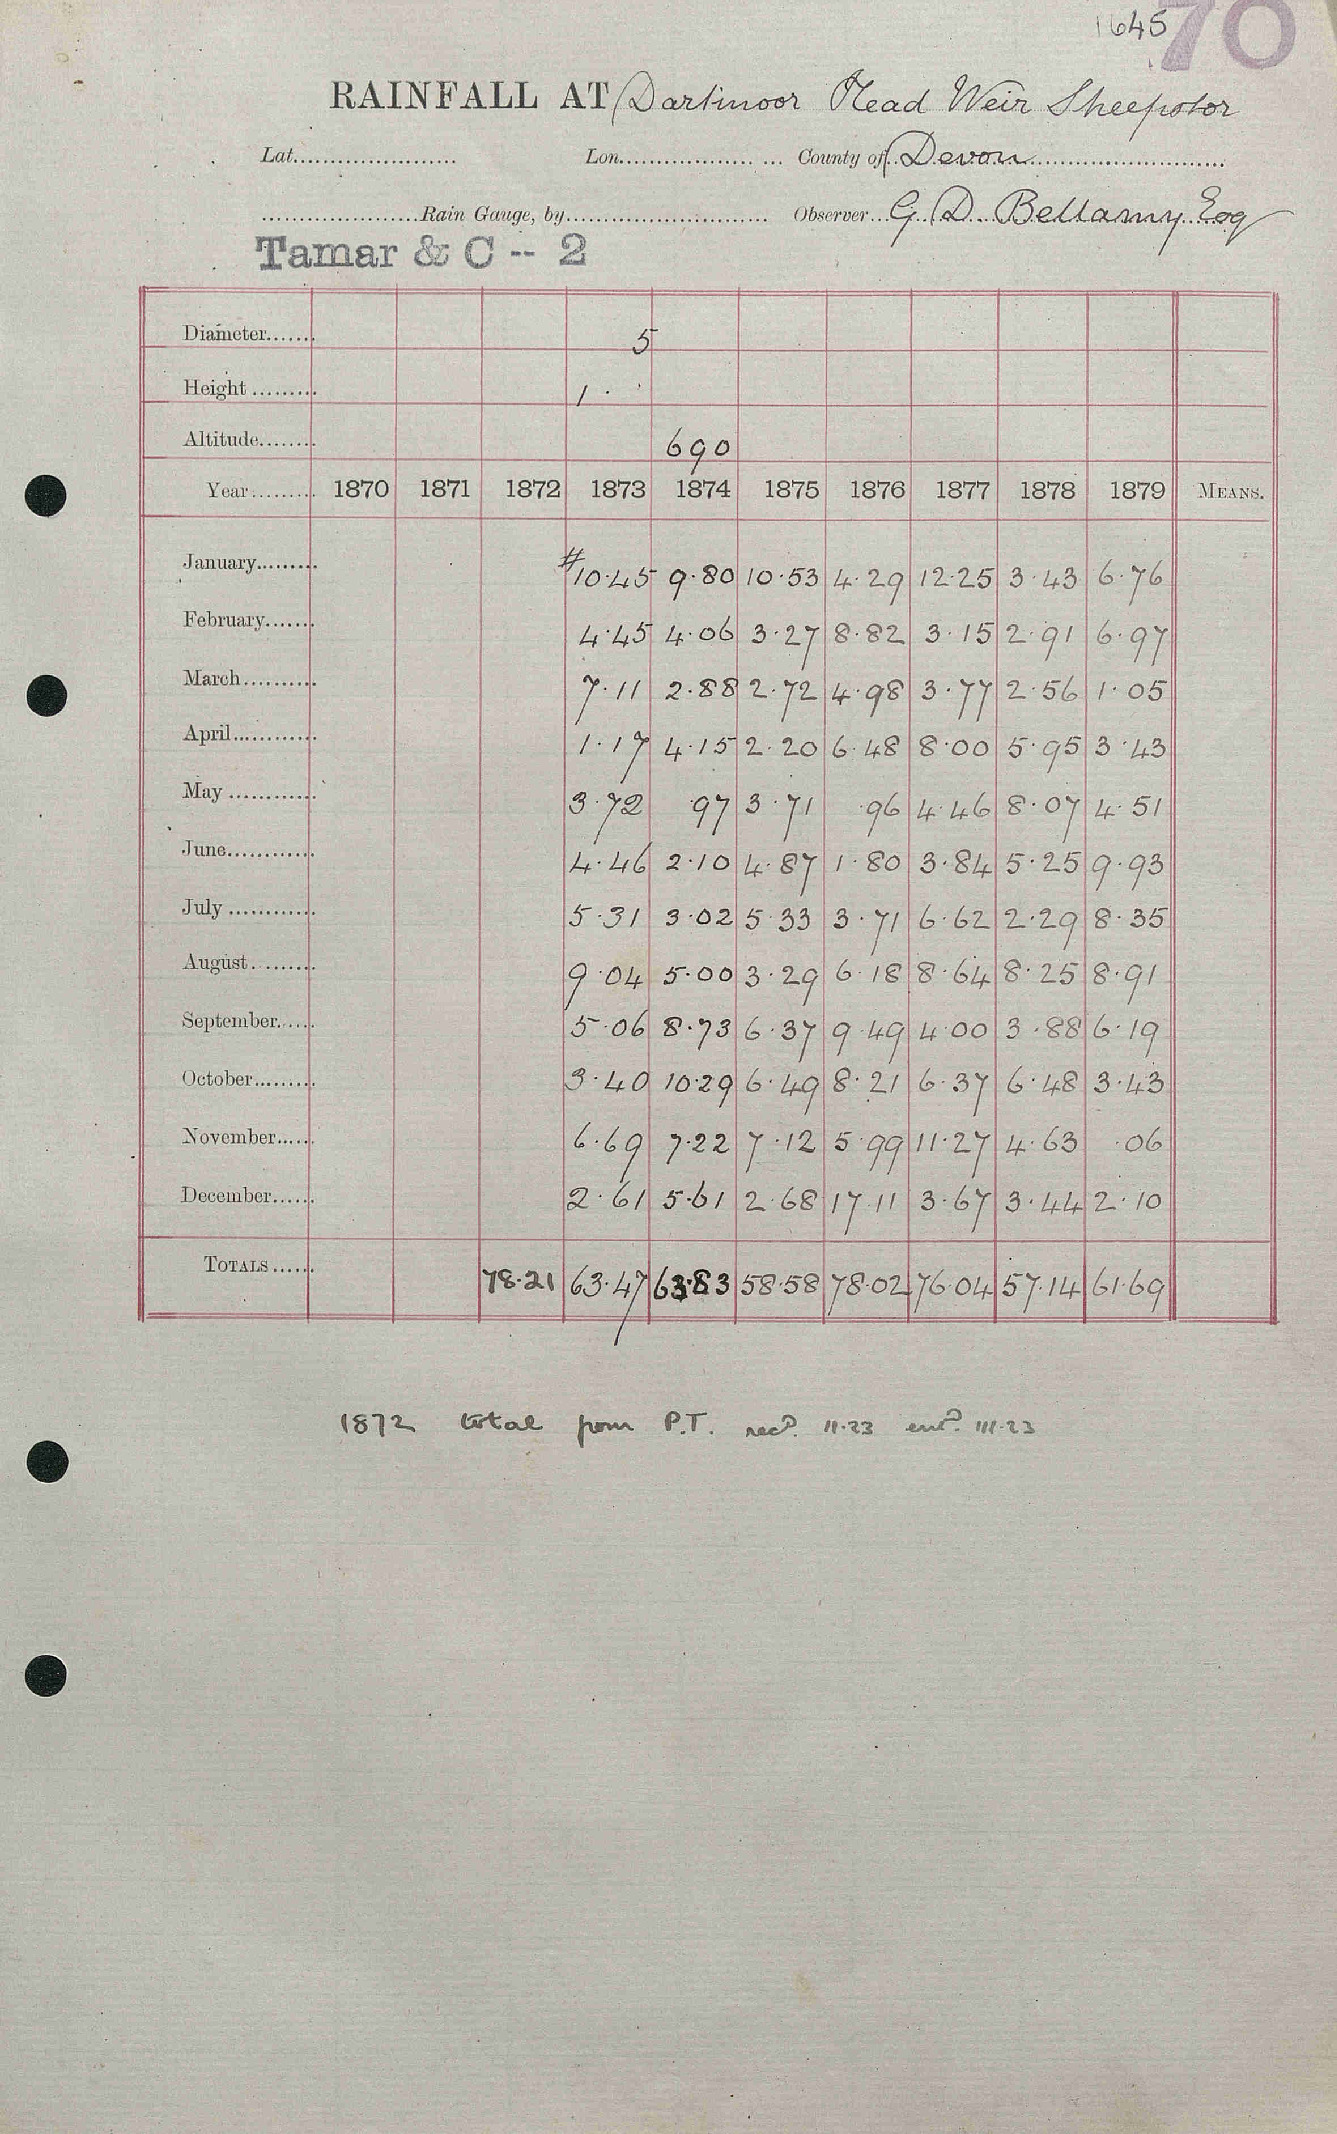 1645 70
RAINFALL AT Dartmoor Head Weir Sheepstor
Lat. Lon. County of Devon
Rain Gauge, by Observer G D Bellamy Esq
Tamar & C -- 2
Diameter 5
Height 1 ·
Altitude 690
Year 1870 1871 1872 1873 1874 1875 1876 1877 1878 1879 MEANS.
January #10·45 9·80 10·53 4·29 12·25 3·43 6·76
February 4·45 4·06 3·27 8·82 3·15 2·91 6·97
March 7·11 2·88 2·72 4·98 3·77 2·56 1·05
April 1·17 4·15 2·20 6·48 8·00 5·95 3·43
May 3·72 ·97 3·71 ·96 4·46 8·07 4·51
June 4·46 2·10 4·87 1·80 3·84 5·25 9·93
July 5·31 3·02 5·33 3·71 6·62 2·29 8·35
August 9·04 5·00 3·29 6·18 8·64 8·25 8·91
September 5·06 8·73 6·37 9·49 4·00 3·88 6·19
October 3·40 10·29 6·49 8·21 6·37 6·48 3·43
November 6·69 7·22 7·12 5·99 11·27 4·63 ·06
December 2·61 5·61 2·68 17·11 3·67 3·44 2·10
TOTALS 78·21 63·47 63·83 58·58 78·02 76·04 57·14 61·69
1872 total from P.T. recd. II·23 entd. III·23